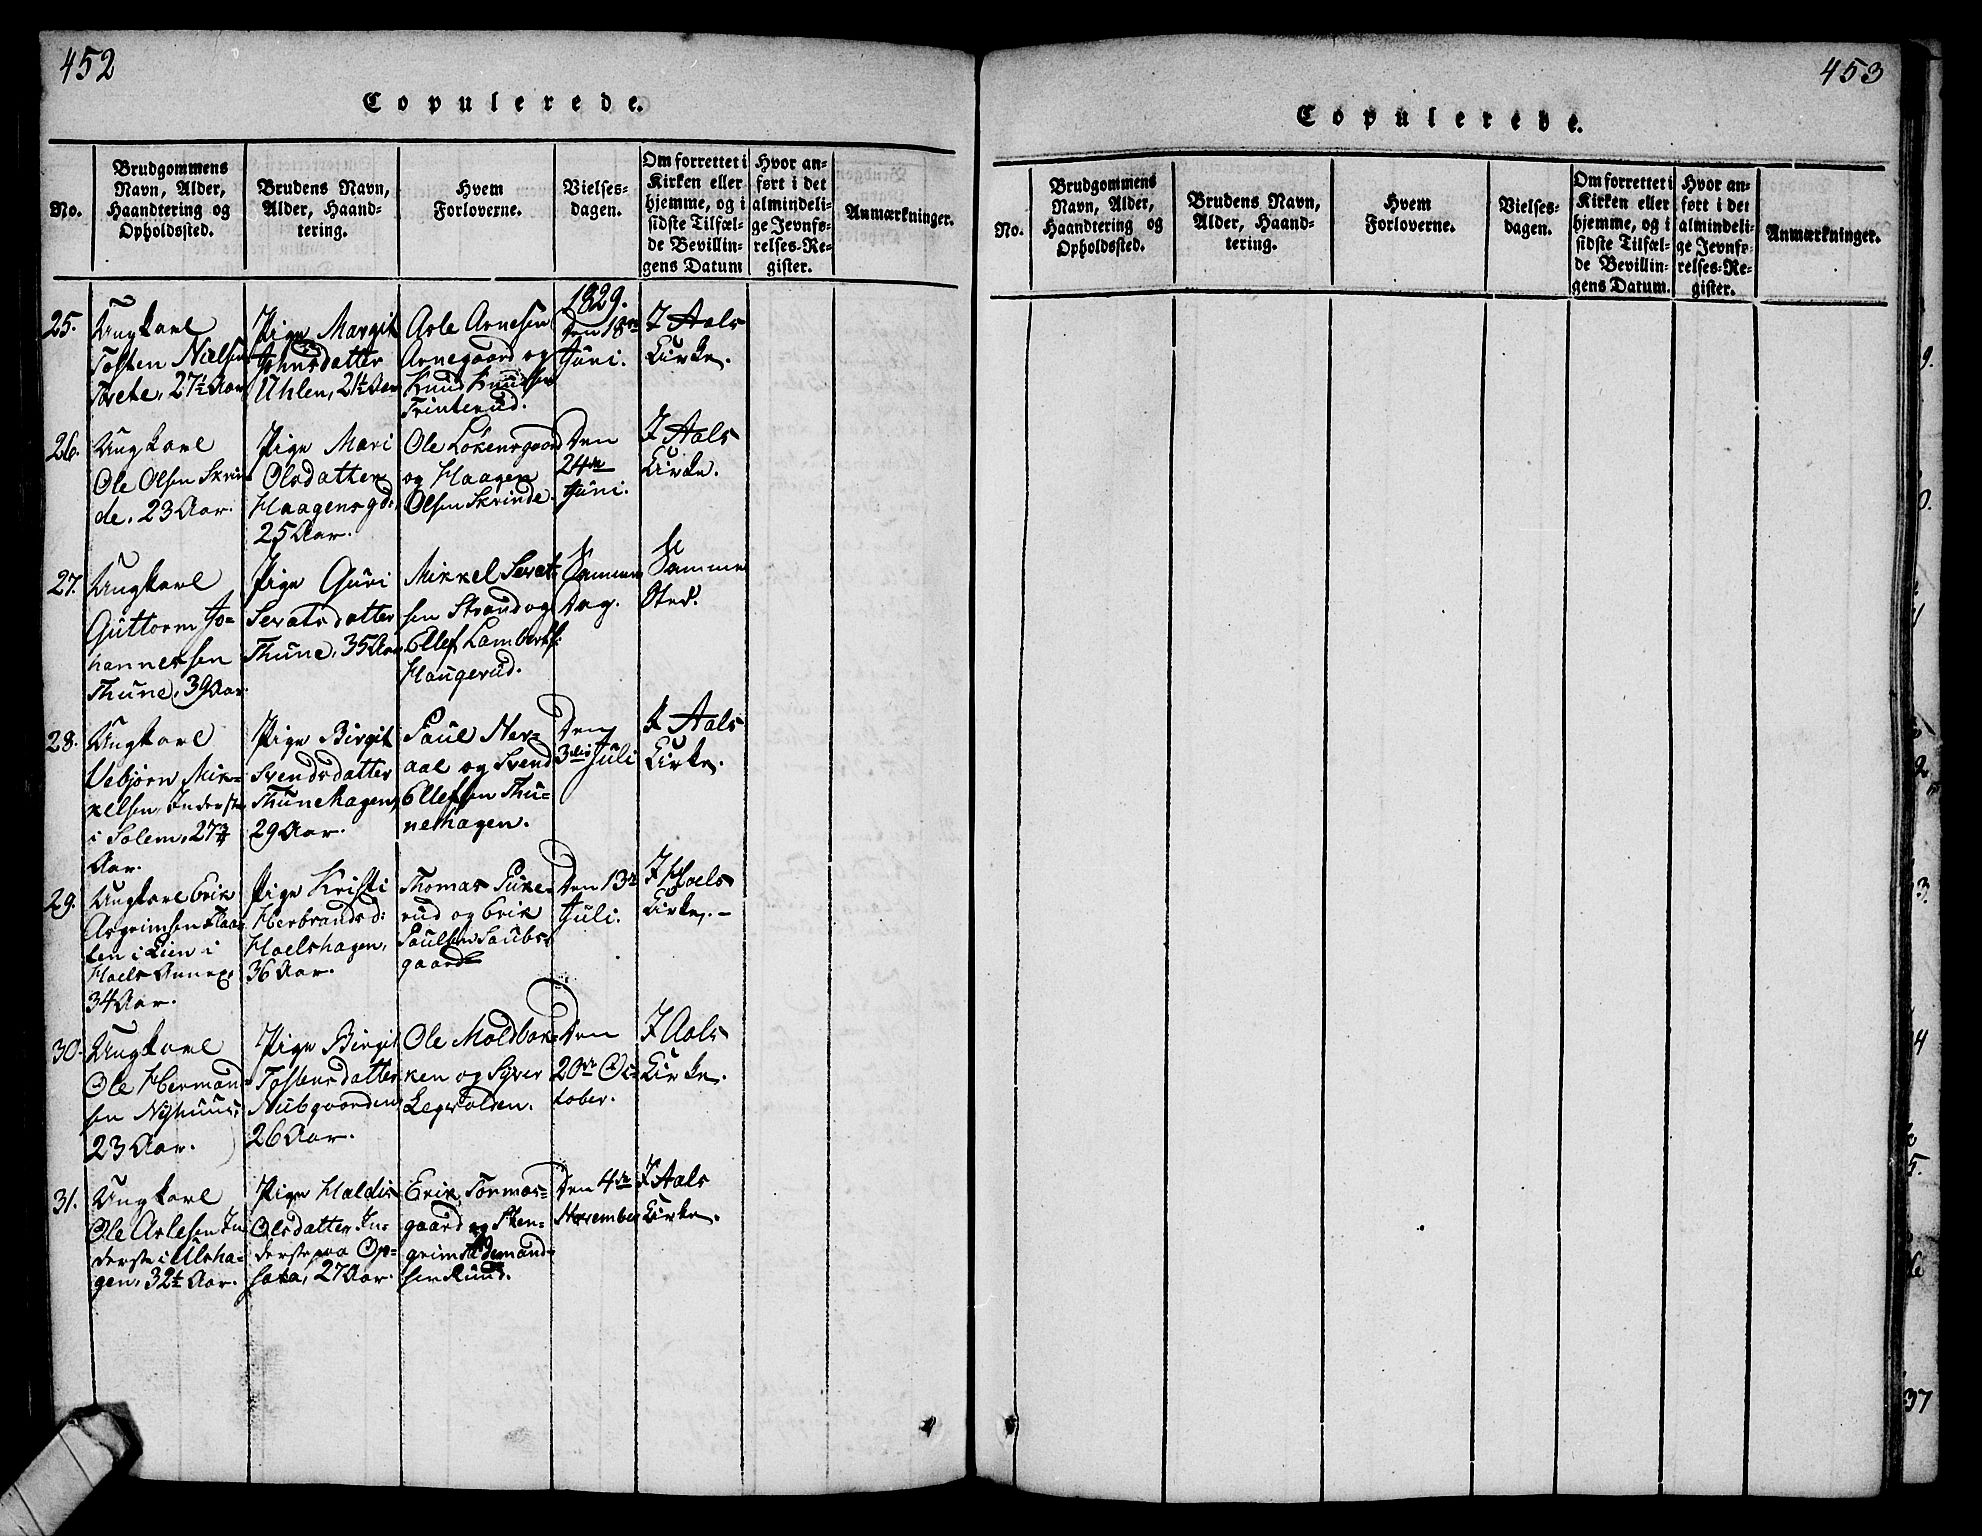 452
Copulerede.
No.
Brudgommens
Navn, Alder,
Haandtering og
Opholdssted.
Brudens Navn,
Alder, Haand-
tering.
Hvem
Forloverne.
Vielses-
dagen.
Om forrettet i
Kirken eller
hjemme, og i
sidste Tilfæl-
de Bevillin-
gens Datum
Hvor an-
ført i det
almindeli-
ge Jevnfø-
relses-Re-
gister.
Anmærkninger.
25.
Ungkarl
Tosten Nielsen
Torete, 27½ Aar
Pige Margit
Johnsdatter
Uhlen, 21½ Aar
Asle Arnesen
Arnegaard og
Knud Knudsen
Trinterud.
1829.
Den 18de
Juni.
I Aals
Kirke.
26.
Ungkarl
Ole Olsen Skrin-
de, 23 Aar.
Pige Mari
Olsdatter
Haagensgd:
25 Aar.
Ole Lokensgaard
og Haagen
Olsen Skrinde.
Den
24de
Juni.
I Aals
Kirke.
27.
Ungkarl
Guttorm Jo-
hannessen
Thune, 39 Aar.
Pige Guri
Sevatsdatter
Thune, 35 Aar
Mikkel Sevat-
sen Strand og
Ellef Lambertss:
Haugerud.
Samme
Dag.
Samme
Sted.
28.
Ungkarl
Vebjørn Mik-
kelsen, Inderste
i Solem, 27¾
Aar.
Pige Birgit
Svendsdatter
Thunehagen,
29 Aar.
Paul Ner-
aal og Svend
Ellefsen Thu-
nehagen.
Den
3die Juli
I Aals
Kirke.
29.
Ungkarl Erik
Asgrimsen Flaa-
ten i Lien i
Hoels Annex,
34 Aar.
Pige Kristi
Herbrandsd:
Hoelshagen,
36 Aar.
Thomas Puke-
rud og Erik
Paulsen Saubs-
gaard
Den 13de
Juli.
I Hoels
Kirke.-
30.
Ungkarl
Ole Herman-
sen Nyhuus,
23 Aar.
Pige Birgit
Tostensdatter
Nubgaarden
26 Aar.
Ole Moldbak-
ken og Syver
Legvolden.
Den
20de Oc-
tober.
I Aals
Kirke.
31.
Ungkarl
Ole Aslesen In-
derste i Ulsha-
gen, 32½ Aar.
Pige Haldis
Olsdatter In-
derste paa Op-
sata, 27 Aar.
Erik Tormos-
gaard og Sten-
grim Aamand-
sen Ruud.
Den 4de
November
I Aals
Kirke.
453
Copulerede.
No.
Brudgommens
Navn, Alder,
Haandtering og
Opholdssted.
Brudens Navn,
Alder, Haand-
tering.
Hvem
Forloverne.
Vielses-
dagen.
Om forrettet i
Kirken eller
hjemme, og i
sidste Tilfæl-
de Bevillin-
gens Datum.
Hvor an-
ført i det
almindeli-
ge Jevnfø-
relses-Re-
gister.
Anmærkninger.
37